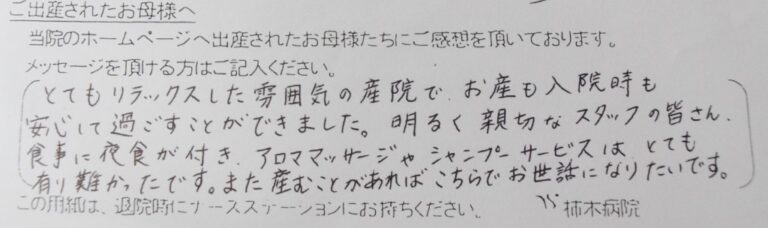 ご出産されたお母様へ
当院のホームページへ出産されたお母様たちにご感想を頂いております。
メッセージを頂ける方はご記入ください。
とてもリラックスした雰囲気の産院で、お産も入院時も
安心して過ごすことができました。明るく親切なスタッフの皆さん、
食事に夜食が付き、アロママッサージやシャンプーサービスは、とても
有り難かったです。また産むことがあればこちらでお世話になりたいです。
この用紙は、退院時にナースステーションにお持ちください。 柿木病院